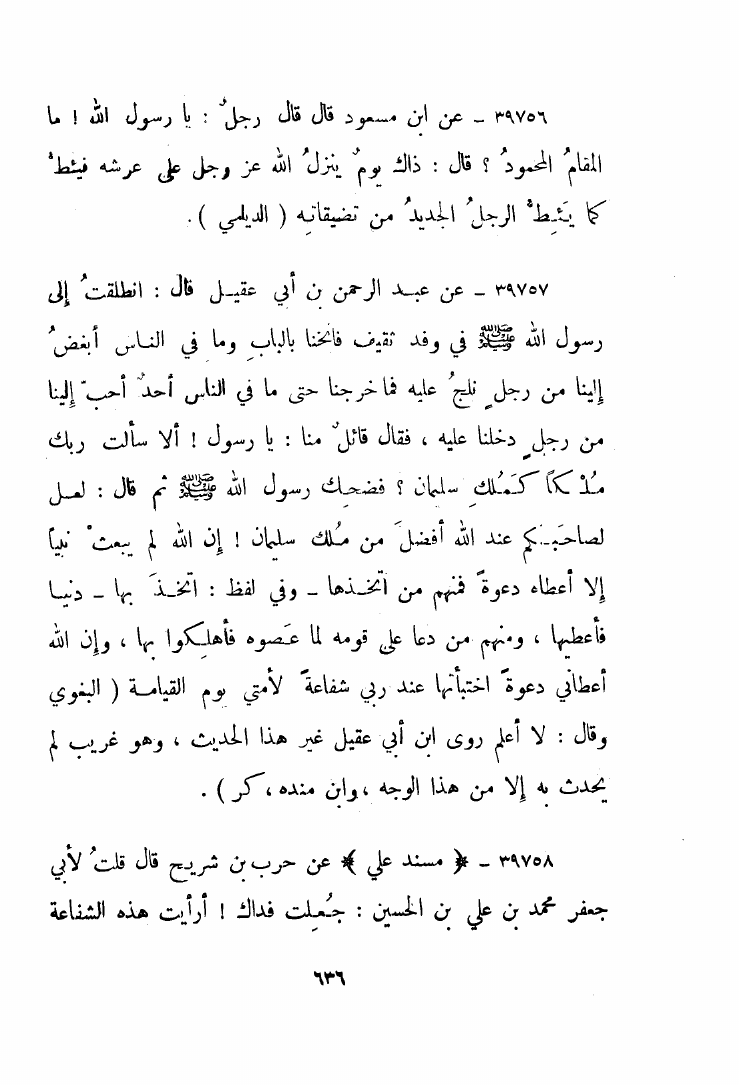 ٣٩٧٥٦ ـ عن ابن مسعود قال قال رجلٌ : يا رسول الله ! ما
المقامُ المحمودُ ؟ قال : ذاك يومٌ ينزلُ الله عز وجل على عرشه فيئطُّ
كما يَئِطُّ الرجلُ الجديدُ من تضيقاتِه ( الديلمي ) .
٣٩٧٥٧ ـ عن عبد الرحمن بن أبي عقيل قال : انطلقتُ إلى
رسول الله ﷺ في وفد ثقيف فأنخنا بالبابِ وما في الناس أبغضُ
إلينا من رجلٍ نلجُ عليه فما خرجنا حتى ما في الناس أحدٌ أحبّ إلينا
من رجلٍ دخلنا عليه ، فقال قائلٌ منا : يا رسول ! ألا سألت ربك
مُلْكاً كَمُلكِ سليمان ؟ فضحِك رسول الله ﷺ ثم قال : لعل
لصاحبَكم عند الله أفضلَ من مُلك سليمان ! إن الله لم يبعثْ نبياً
إلا أعطاه دعوةً فمنهم من اتخذها ـ وفي لفظ : اتخذَ بها ـ دنيا
فأعطيها ، ومنهم من دعا على قومه لما عَصوه فأهلِكوا بها ، وإن الله
أعطاني دعوةً اختبأتها عند ربي شفاعةً لأمتي يوم القيامة ( البغوي
وقال : لا أعلم روى ابن أبي عقيل غير هذا الحديث ، وهو غريب لم
يحدث به إلا من هذا الوجه ، وابن منده ، كر ) .
٣٩٧٥٨ ـ ﴿ مسند علي ﴾ عن حرب بن شريح قال قلتُ لأبي
جعفر محمد بن علي بن الحسين : جُعِلت فداك ! أرأيت هذه الشفاعة
٦٣٦